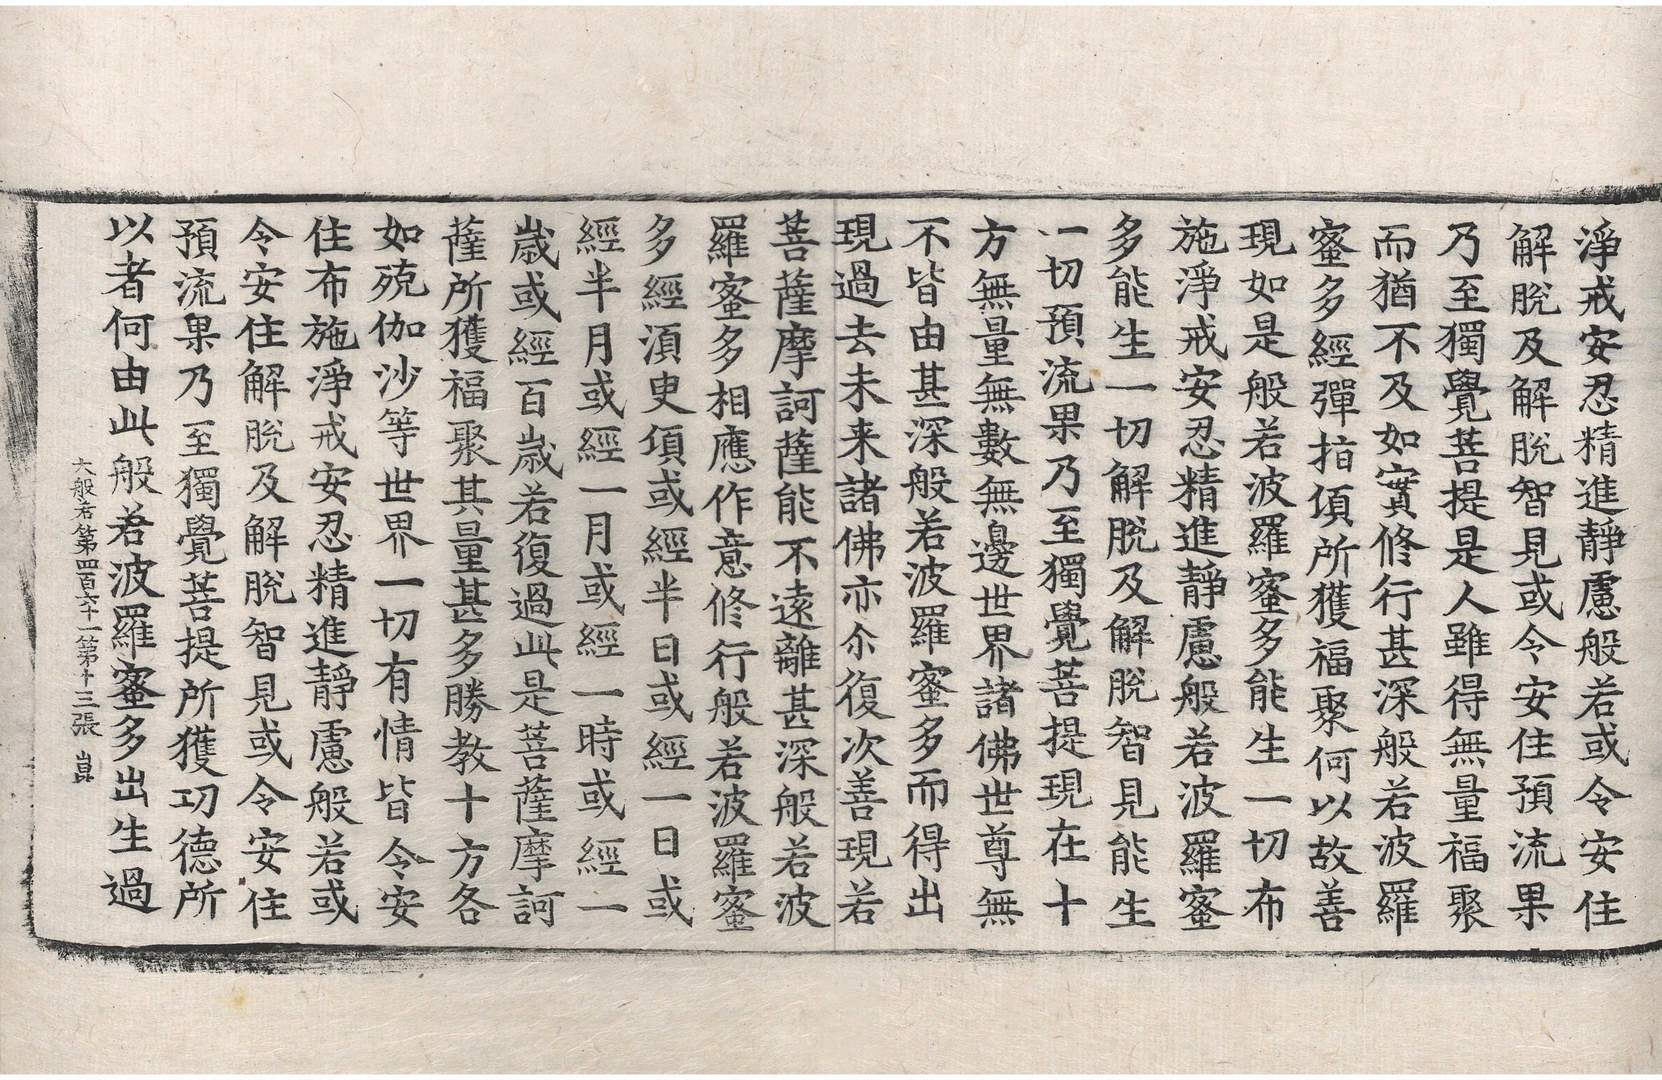 淨戒安忍精進靜慮般若或令安住
解脫及解脫智見或令安住預流果
乃至獨覺菩提是人雖得無量福聚
而猶不及如實修行甚深般若波羅
蜜多經彈指頃所獲福聚何以故善
現如是般若波羅蜜多能生一切布
施淨戒安忍精進靜慮般若波羅蜜
多能生一切解脫及解脫智見能生
一切預流果乃至獨覺菩提現在十
方無量無數無邊世界諸佛世尊無
不皆由甚深般若波羅蜜多而得出
現過去未来諸佛亦尒復次善現若
菩薩摩訶薩能不遠離甚深般若波
羅蜜多相應作意修行般若波羅蜜
多經湏臾頃或經半日或經一日或
經半月或經一月或經一時或經一
歲或經百歲若復過此是菩薩摩訶
薩所獲福聚其量甚多勝教十方各
如殑伽沙等世界一切有情皆令安
住布施淨戒安忍精進靜慮般若或
令安住解脫及解脫智見或令安住
預流果乃至獨覺菩提所獲功德所
以者何由此般若波羅蜜多出生過
大般若第四百六十一第十三張 崑